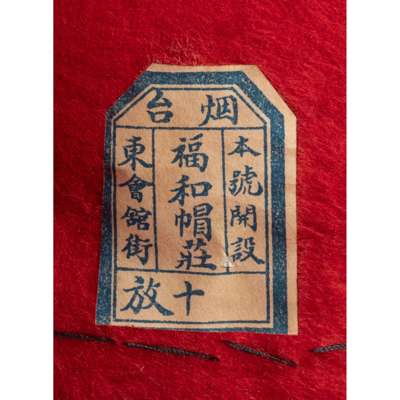 烟台
本號開設
福和帽莊
東會舘街
十放